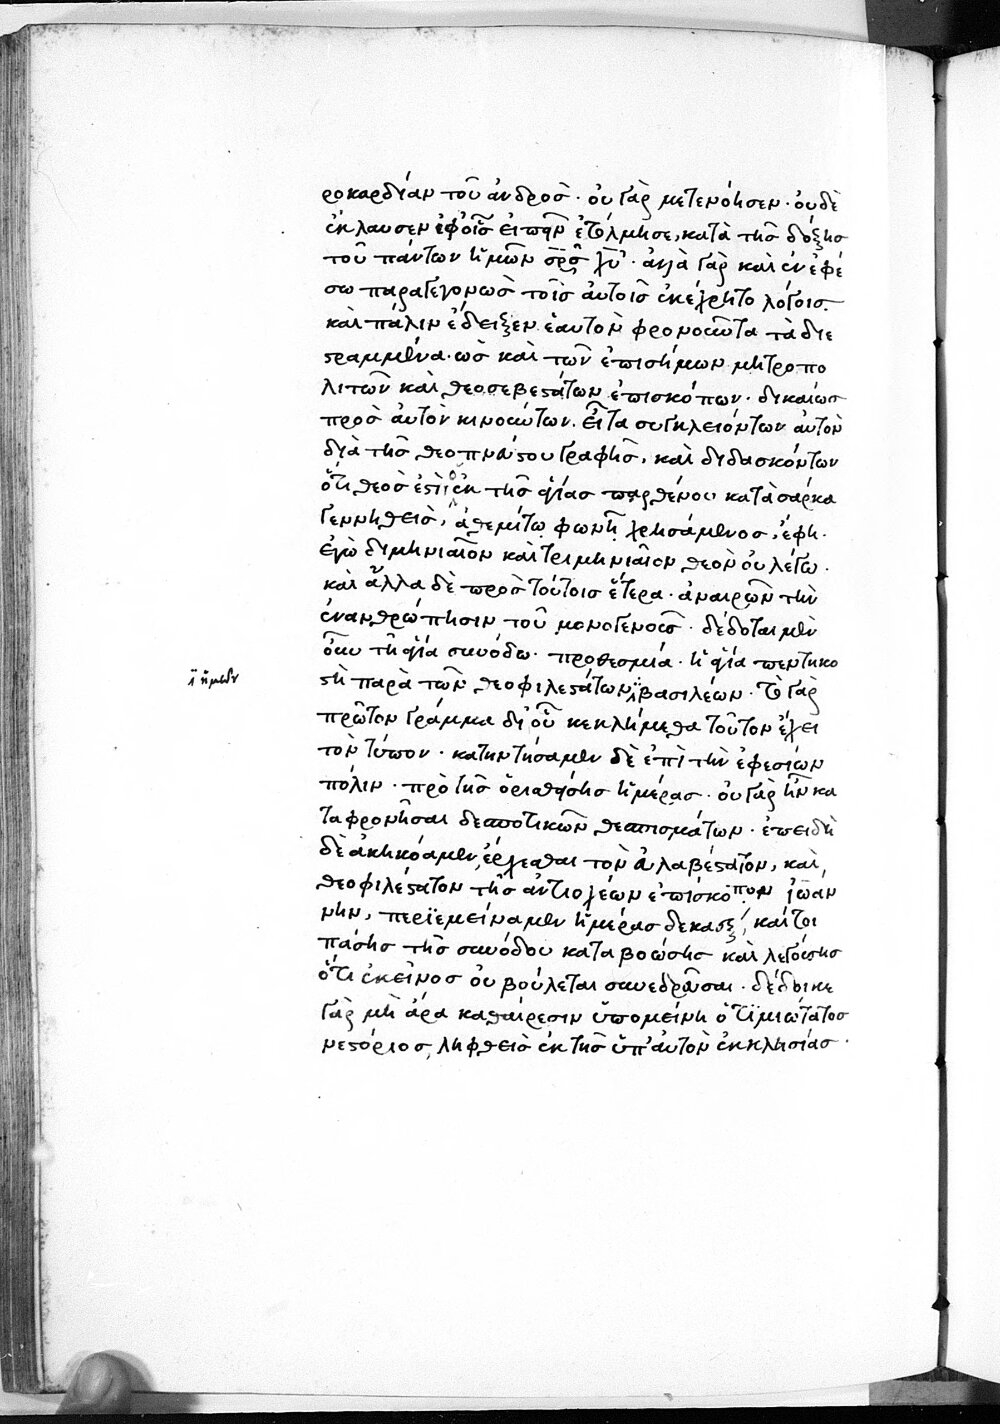 ροκαρδίαν τοῦ ἀνδρὸς · οὐ γὰρ μετενόησεν · οὐδὲ
ἔκλαυσεν ἐφ' οἷς εἰπεῖν ἐτόλμησε, κατὰ τῆς δόξης
τοῦ πάντων ἡμῶν σρ̅ς̅ χυ̅ · ἀλλὰ γὰρ καὶ ἐν ἐφέ
σω παραγεγονὼς τοῖς αὐτοῖς ἐκέχρητο λόγοις
καὶ πάλιν ἔδειξεν ἑαυτὸν φρονοῦντα τὰ διε
στραμμένα · ὡς καὶ τῶν ἐπισήμων μητροπο
λιτῶν καὶ θεοσεβεστάτων ἐπισκόπων · δικαίως
πρὸς αὐτὸν κινούντων · εἶτα συγκλειόντων αὐτὸν
διὰ τῆς θεοπνεύστου γραφῆς · καὶ διδασκόντων
ὅτι θεὸς ἐστὶ ὁ ἐκ τῆς ἁγίας παρθένου κατὰ σάρκα
γεννηθεὶς, ἀθεμίτω φωνῇ χρησάμενος, ἔφη ·
ἐγὼ διμηνιαῖον καὶ τριμηνιαῖον θεὸν οὐ λέγω ·
καὶ ἄλλα δὲ πρὸς τούτοις ἕτερα · ἀναιρῶν τὴν
ἐνανθρώπησιν τοῦ μονογενοῦς · δέδοται μὲν
οὖν τῇ ἁγία συνόδω · προθεσμία · ἡ ἁγία πεντηκο
στὴ παρὰ τῶν θεοφιλεστάτων βασιλέων · τὸ γὰρ
ἡμῶν
πρῶτον γράμμα δι' οὗ κεκλήμεθα τοῦτον ἔχει
τὸν τύπον · κατηντήσαμεν δὲ ἐπὶ τὴν ἐφεσίων
πόλιν · πρὸ τῆς ὁρισθείσης ἡμέρας · οὐ γὰρ ἦν κα
ταφρονῆσαι δεσποτικῶν θεσπισμάτων · ἐπειδὴ
δὲ ἀκηκόαμεν, ἔρχεσθαι τὸν εὐλαβέστατον, καὶ
θεοφιλέστατον τῆς ἀντιοχέων ἐπίσκοπον ἰωάν
νην, περιεμείναμεν ἡμέρας δεκαὲξ, καίτοι
πάσης τῆς συνόδου καταβοώσης καὶ λεγούσης
ὅτι ἐκεῖνος οὐ βούλεται συνεδρεῦσαι · δέδοικε
γὰρ μὴ ἄρα καθαίρεσιν ὑπομείνη ὁ τιμιώτατος
νεστόριος, ληφθεὶς ἐκ τῆς ὑπ' αὐτὸν ἐκκλησίας ·